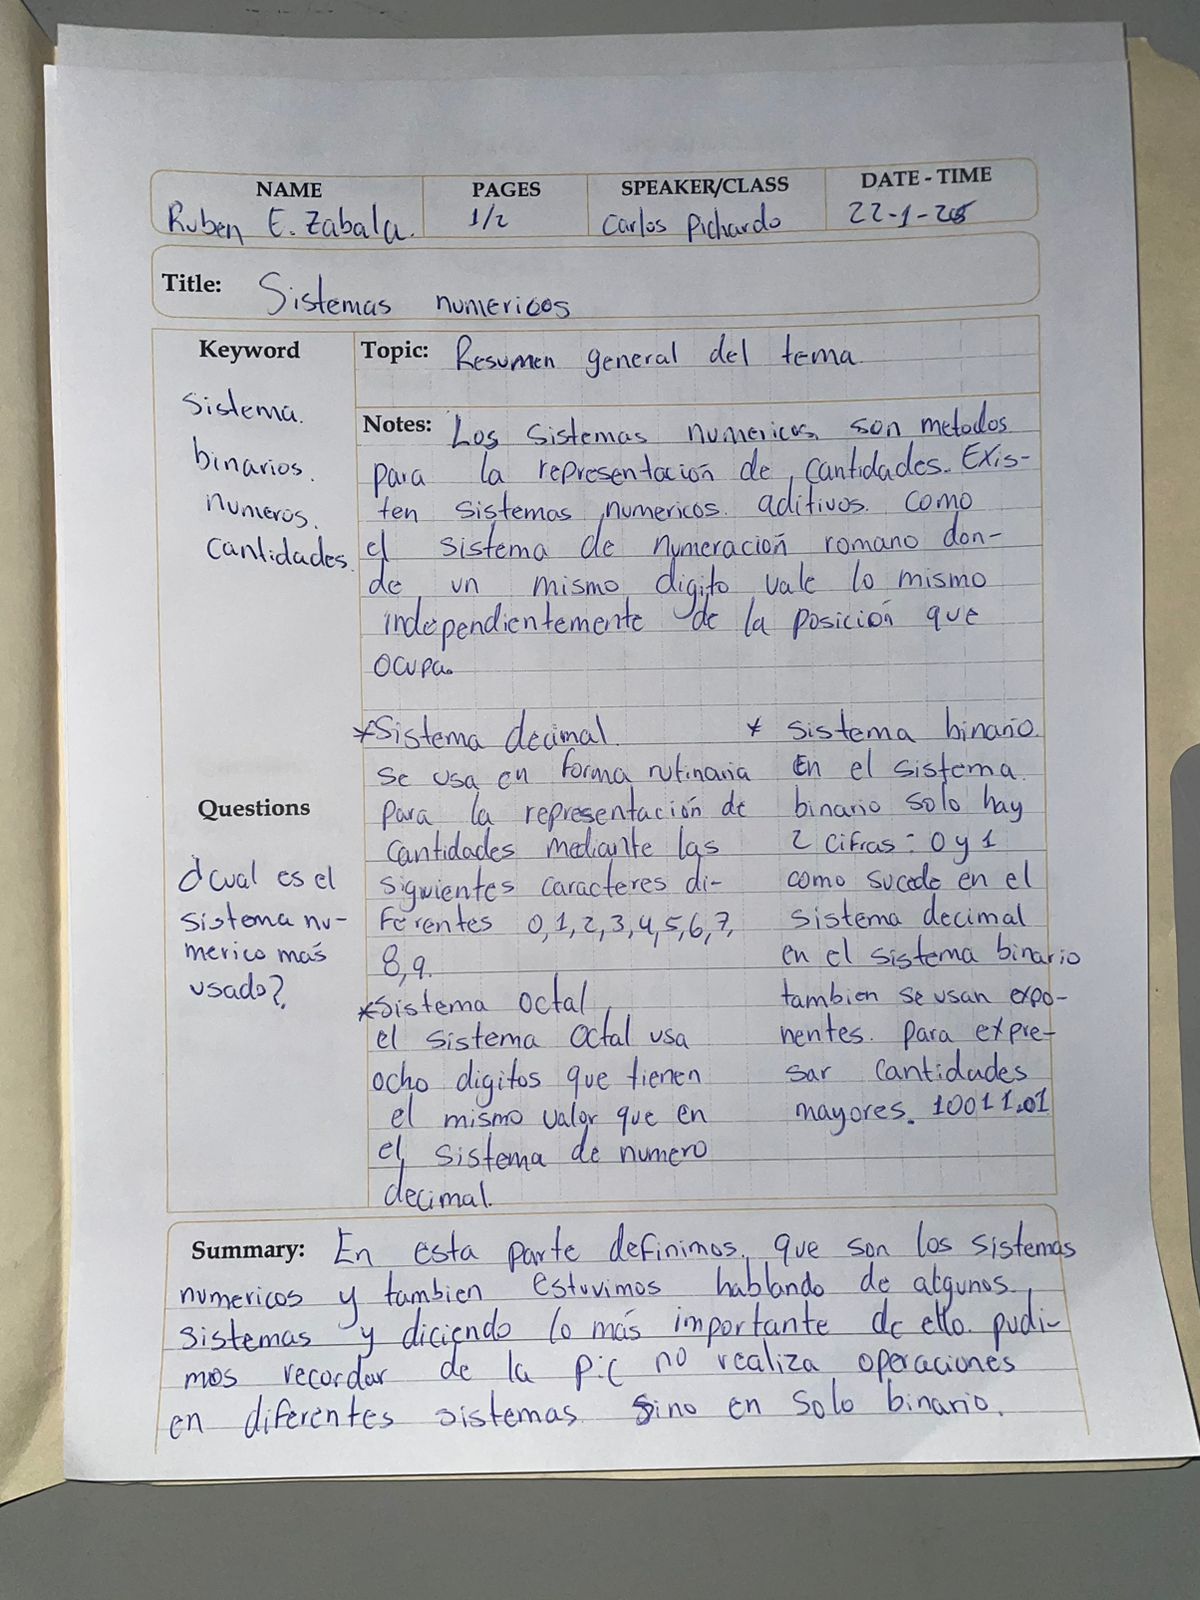 NAME PAGES SPEAKER/CLASS DATE - TIME
Ruben E. Zabala. 1/2 Carlos Pichardo 22-1-205
Title: Sistemas numericos
Keyword
Sistema.
binarios.
numeros.
Cantidades.
Topic: Resumen general del tema.
Notes: Los Sistemas numericos son metodos
para la representación de cantidades. Exis-
ten sistemas numericos aditivos como
el sistema de numeración romano don-
de un mismo digito vale lo mismo
independientemente de la posición que
ocupa.
*Sistema decimal.
Se usa en forma rutinaria
para la representación de
cantidades mediante las
siguientes caracteres di-
ferentes 0,1,2,3,4,5,6,7,
8,9.
*Sistema octal
el sistema octal usa
ocho digitos que tienen
el mismo valor que en
el sistema de numero
decimal.
* sistema binario.
En el sistema
binario solo hay
2 cifras: 0 y 1
como sucede en el
sistema decimal
en el sistema binario
tambien se usan expo-
nentes. para expre-
sar cantidades
mayores. 10011.01
Questions
¿cual es el
sistema nu-
merico más
usado?
Summary: En esta parte definimos, que son los sistemas
numericos y tambien estuvimos hablando de algunos
sistemas y diciendo lo más importante de ello. pudi-
mos recordar de la P.C no realiza operaciones
en diferentes sistemas sino en solo binario.